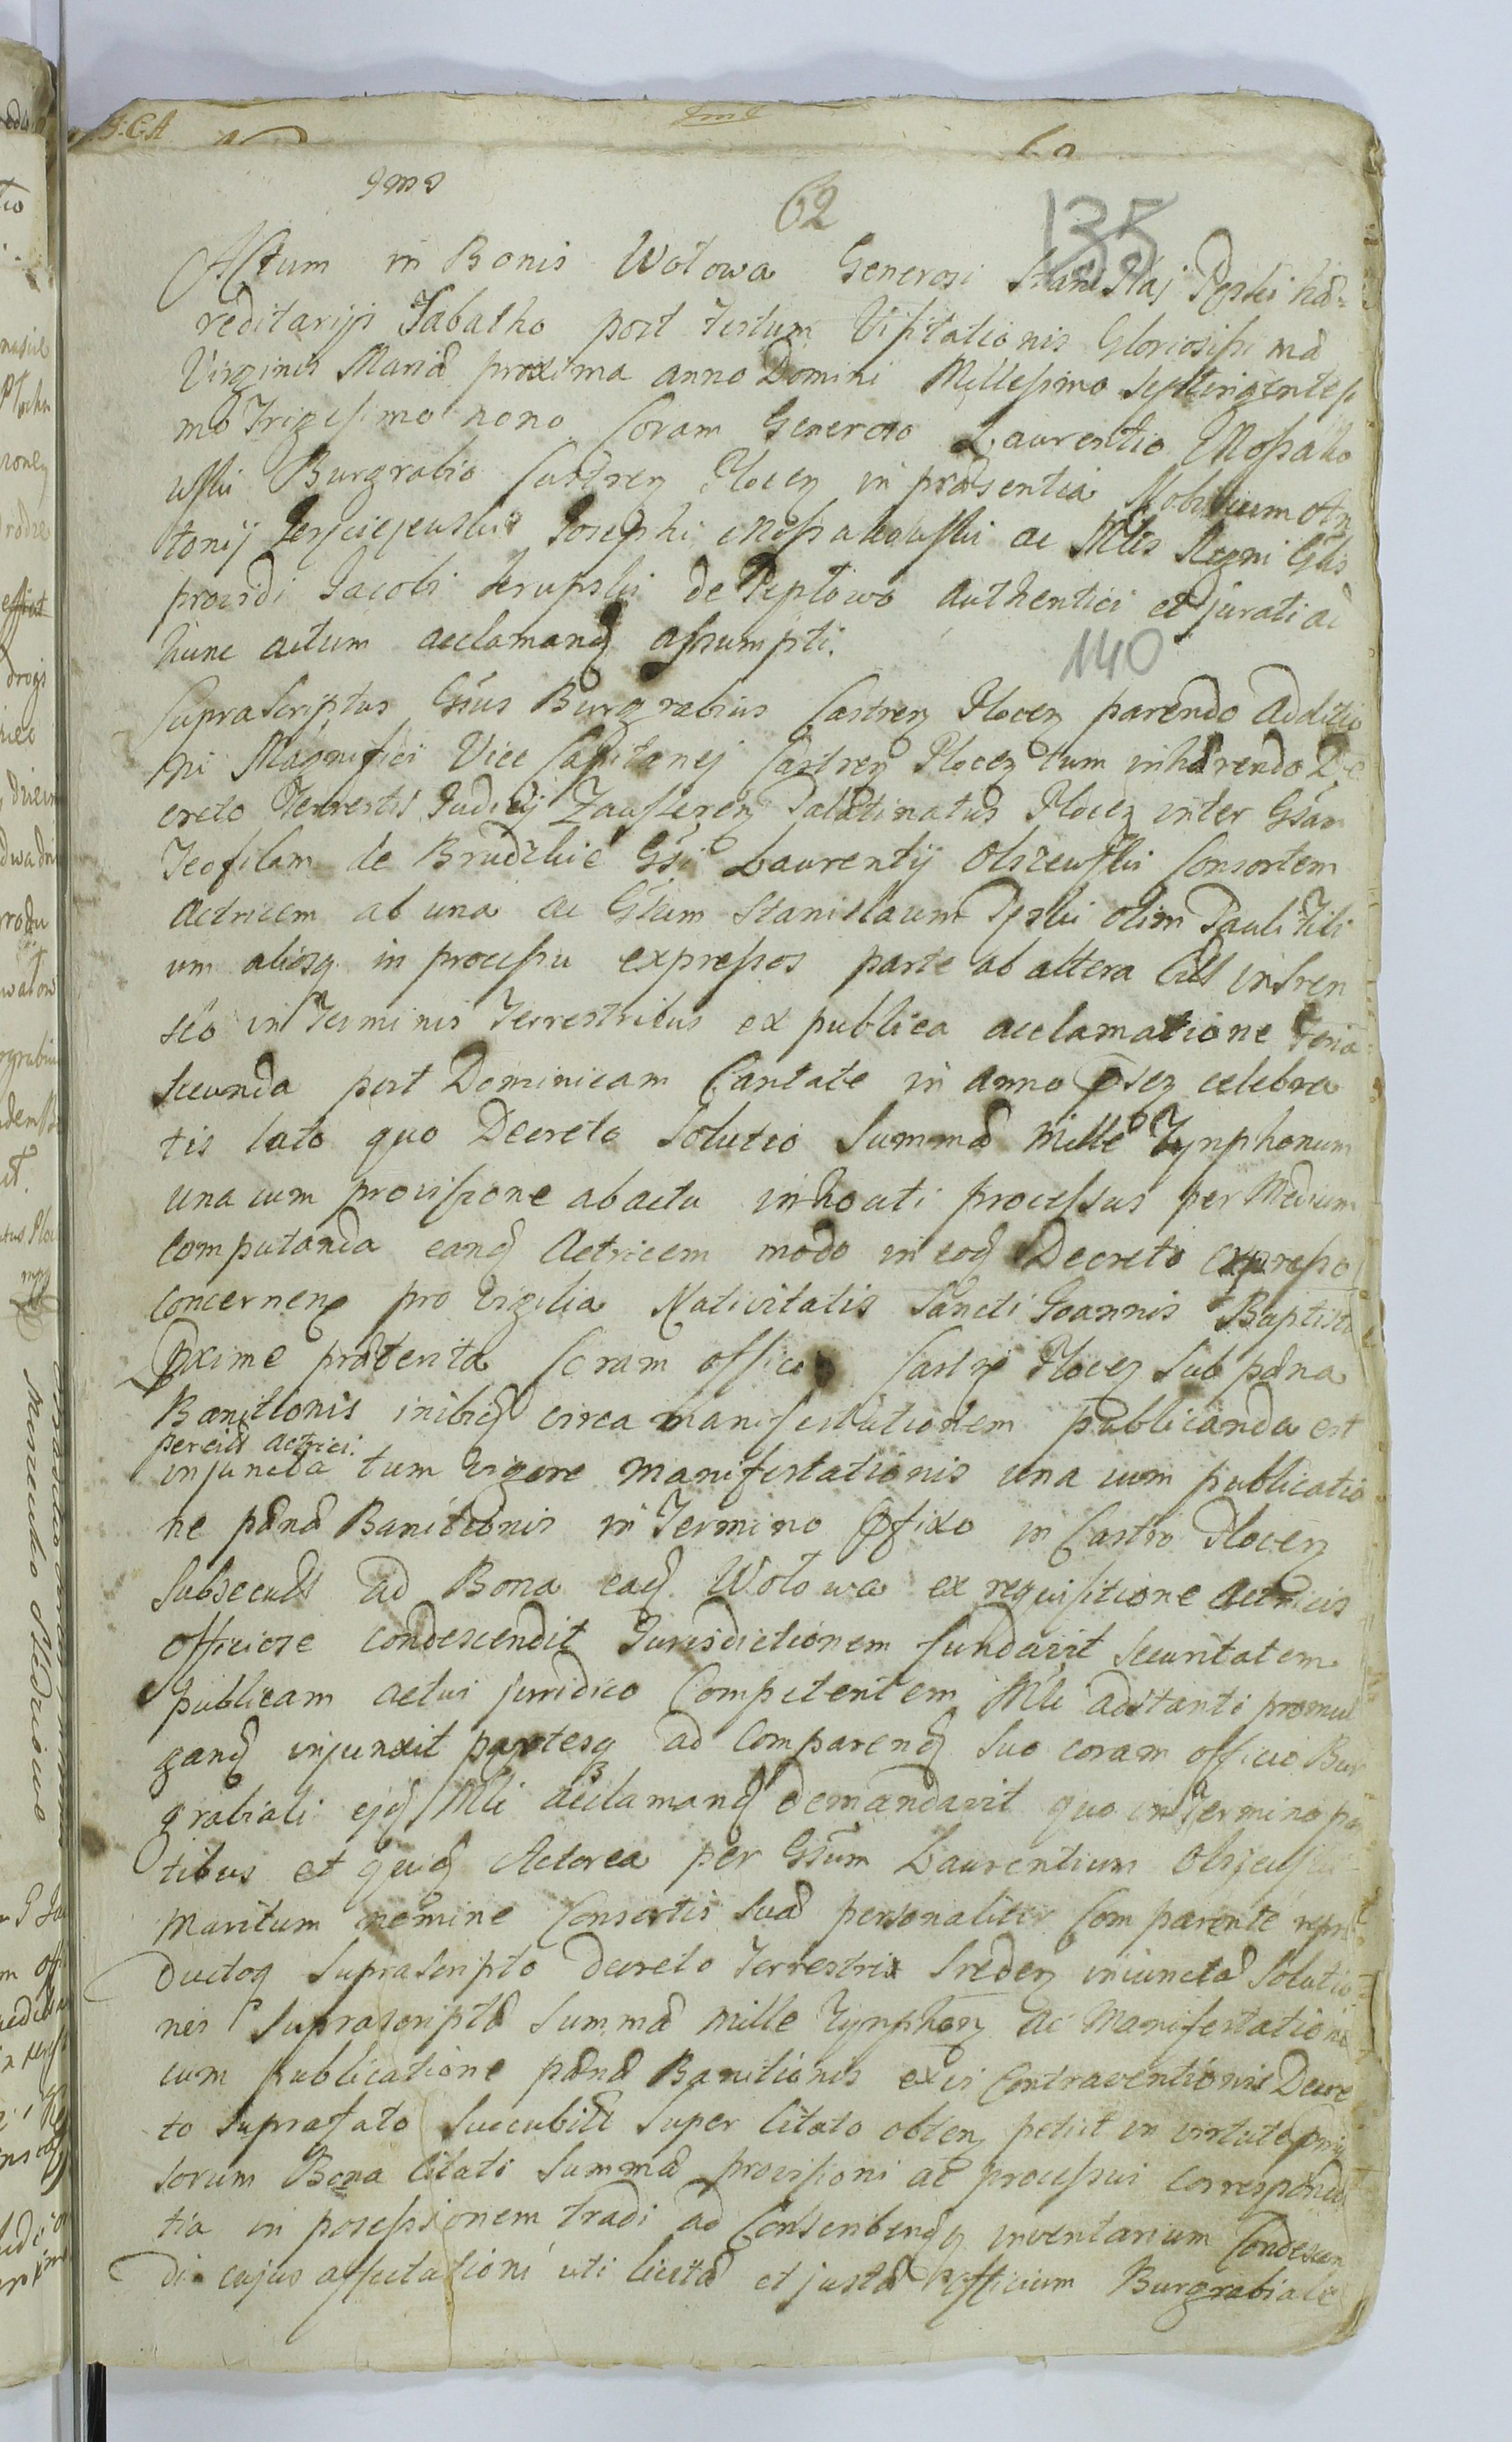 J: C: A
9ms
62
135
Actum in Bonis Wołowa Generosi Stanislaj Peski hæ=
reditarijs Sabatho post Festum Visitationis Gloriosissimæ
Virginis Mariæ proxima anno Domini Millesimo Septingentesi
mo Trigesimo nono Coram Generoso Laurentio Mossako
wski Burgrabio Castren Plocen in præsentia Nobilium An
tonij Josephi Mossakowski ac Mlis Regni Glis
providi Jacobi Krupski de Peptowo authentici et jurati ad
hunc actum acclamand assumpti.
140
Suprascriptus Gsus Burgrabius Castren Plocen parendo additio
ni Magnifici Vice Capitanej Castren Plocen tum inhærendo De
creto Terrestis Judicij Zauskren Palatinatus Plocen inter Gsam
Teofilam de Brudzkie Gsi Laurentij Olszewski Consortem
Actricem ab una ac Gsum Stanislaum Peski olim Pauli Fili
um aliosq in processu expressos parte ab altera Cits in Sren
sco in Terminis Terrestribus ex publica acclamatione Feria
Secunda post Dominicam Cantate in anno psen celebra
tis lato quo Decreto Solutio Summæ Mille Tynphonum
una cum provisione ab actu inhoati processus per Medium
computanda eand Actricem modo in eod Decreto expresso
concernen pro Vigilia Nativitatis Sancti Joannis Baptistæ
pxime præterita Coram officio Castri Plocen Sub pæna
Banitionis inibid circa manifestationem publicanda est
per Cits Actrici.
injuncta tum vigore manifestationis una cum publicatio
ne pænæ Banitionis in Termino pfixo in Castro Plocen
Subsecuts ad Bona ead Wołowa ex requisitione Actricis
officiose condescendit Jurisdictionem fundavit Securitatem
publicam actui juridico Competentem Mli adstanti promul
gand injunxit partesq ad Comparend Suo coram officio Bur
grabiali ejd Mli acclamand demandavit quo in Termino par
tibus et quid Actorea per Gsum Laurentium
Maritum nomine Consortis Suæ personaliter Comparente repro
ductoq Suprascripto Decreto Terrestri Sreden iniunctæ Solutio
nis Suprascriptæ Summæ mille Tynphon ac Manifestatione
cum publicatione pænæ Banitionis ex vi Contraventionis Decre
to Suprafato Succubits Super Citato obten petiit in virtute
sorum Bona Citati Summæ provisioni ac processui corresponden
tia in possessionem tradi ad Conscribendq inventarium Condescen
di cujus affectationi uti licitæ et justæ officium Burgrabiale